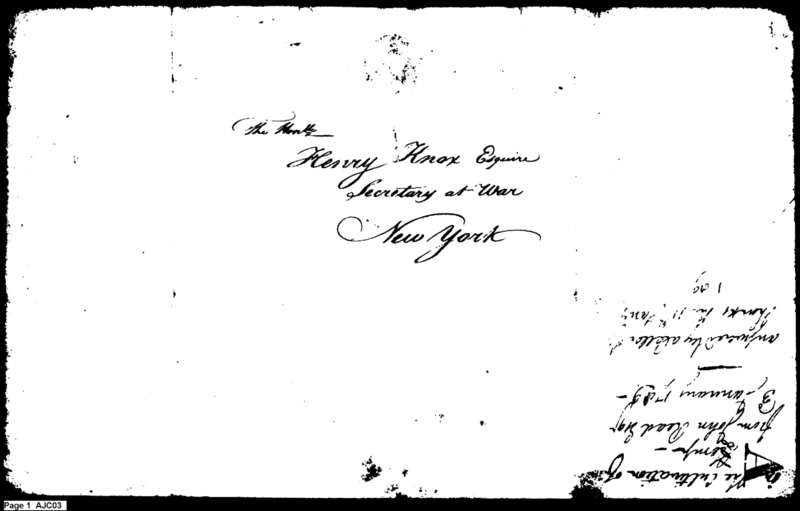 The Honble
Henry Knox Esquire
Secretary at War
New York
The Cultivation of
Hemp —
from John Read Esqr
3 January 1789 —
answered by a letter of
thanks the 11th Jany
Page 1 AJC03